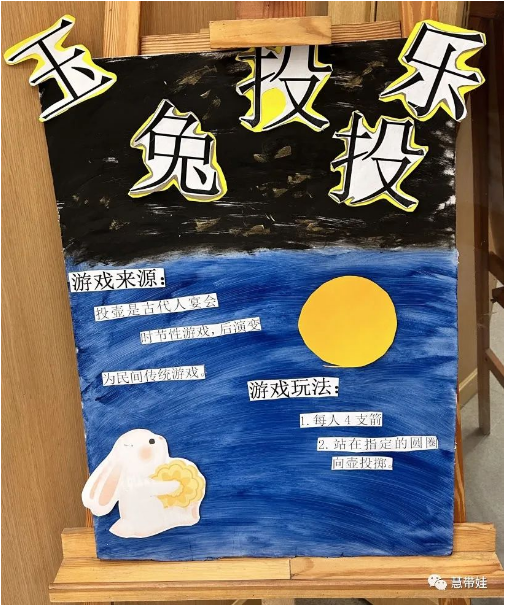 玉兔投投乐
游戏来源：
投壶是古代人宴会
时节性游戏，后演变
为民间传统游戏。
游戏玩法：
1.每人4支箭
2.站在指定的圆圈
向壶投掷。
慧带娃